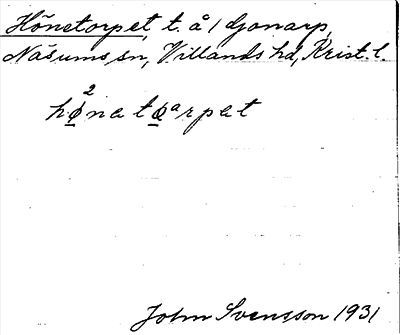 Hönetorpet t. å / Gonarp,
Näsums sn, Villands hd, Krist. l.
2
hø̲natø̲ªrpet
John Svensson 1931